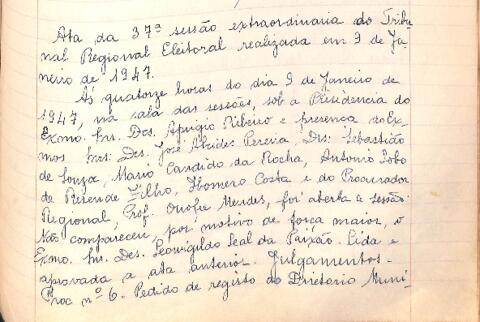 Ata da 37ª sessão extraordinaria do Tribu-
nal Regional Eleitoral realizada em 9 de Ja-
neiro de 1947.
Ás quatorze horas do dia 9 de Janeiro de
1947, na sala das sessões, sob a Presidencia do
Exmo. Snr. Des. Aprigio Ribeiro e presença do Ex-
mos Snrs: Des. José Alcides Pereira, Drs: Sebastião
de Souza, Mario Candido da Rocha, Antonio Lobo
de Resende Filho, Homero Costa e do Procurador
Regional, Prof. Onofre Mendes, foi aberta a sessão.
Não compareceu, por motivo de força maior, o
Exmo. Snr. Des. Leovigildo Leal da Paixão. Lida e
aprovada a ata anterior. Julgamentos -
Proc nº 6. Pedido de registo do Diretorio Muni-